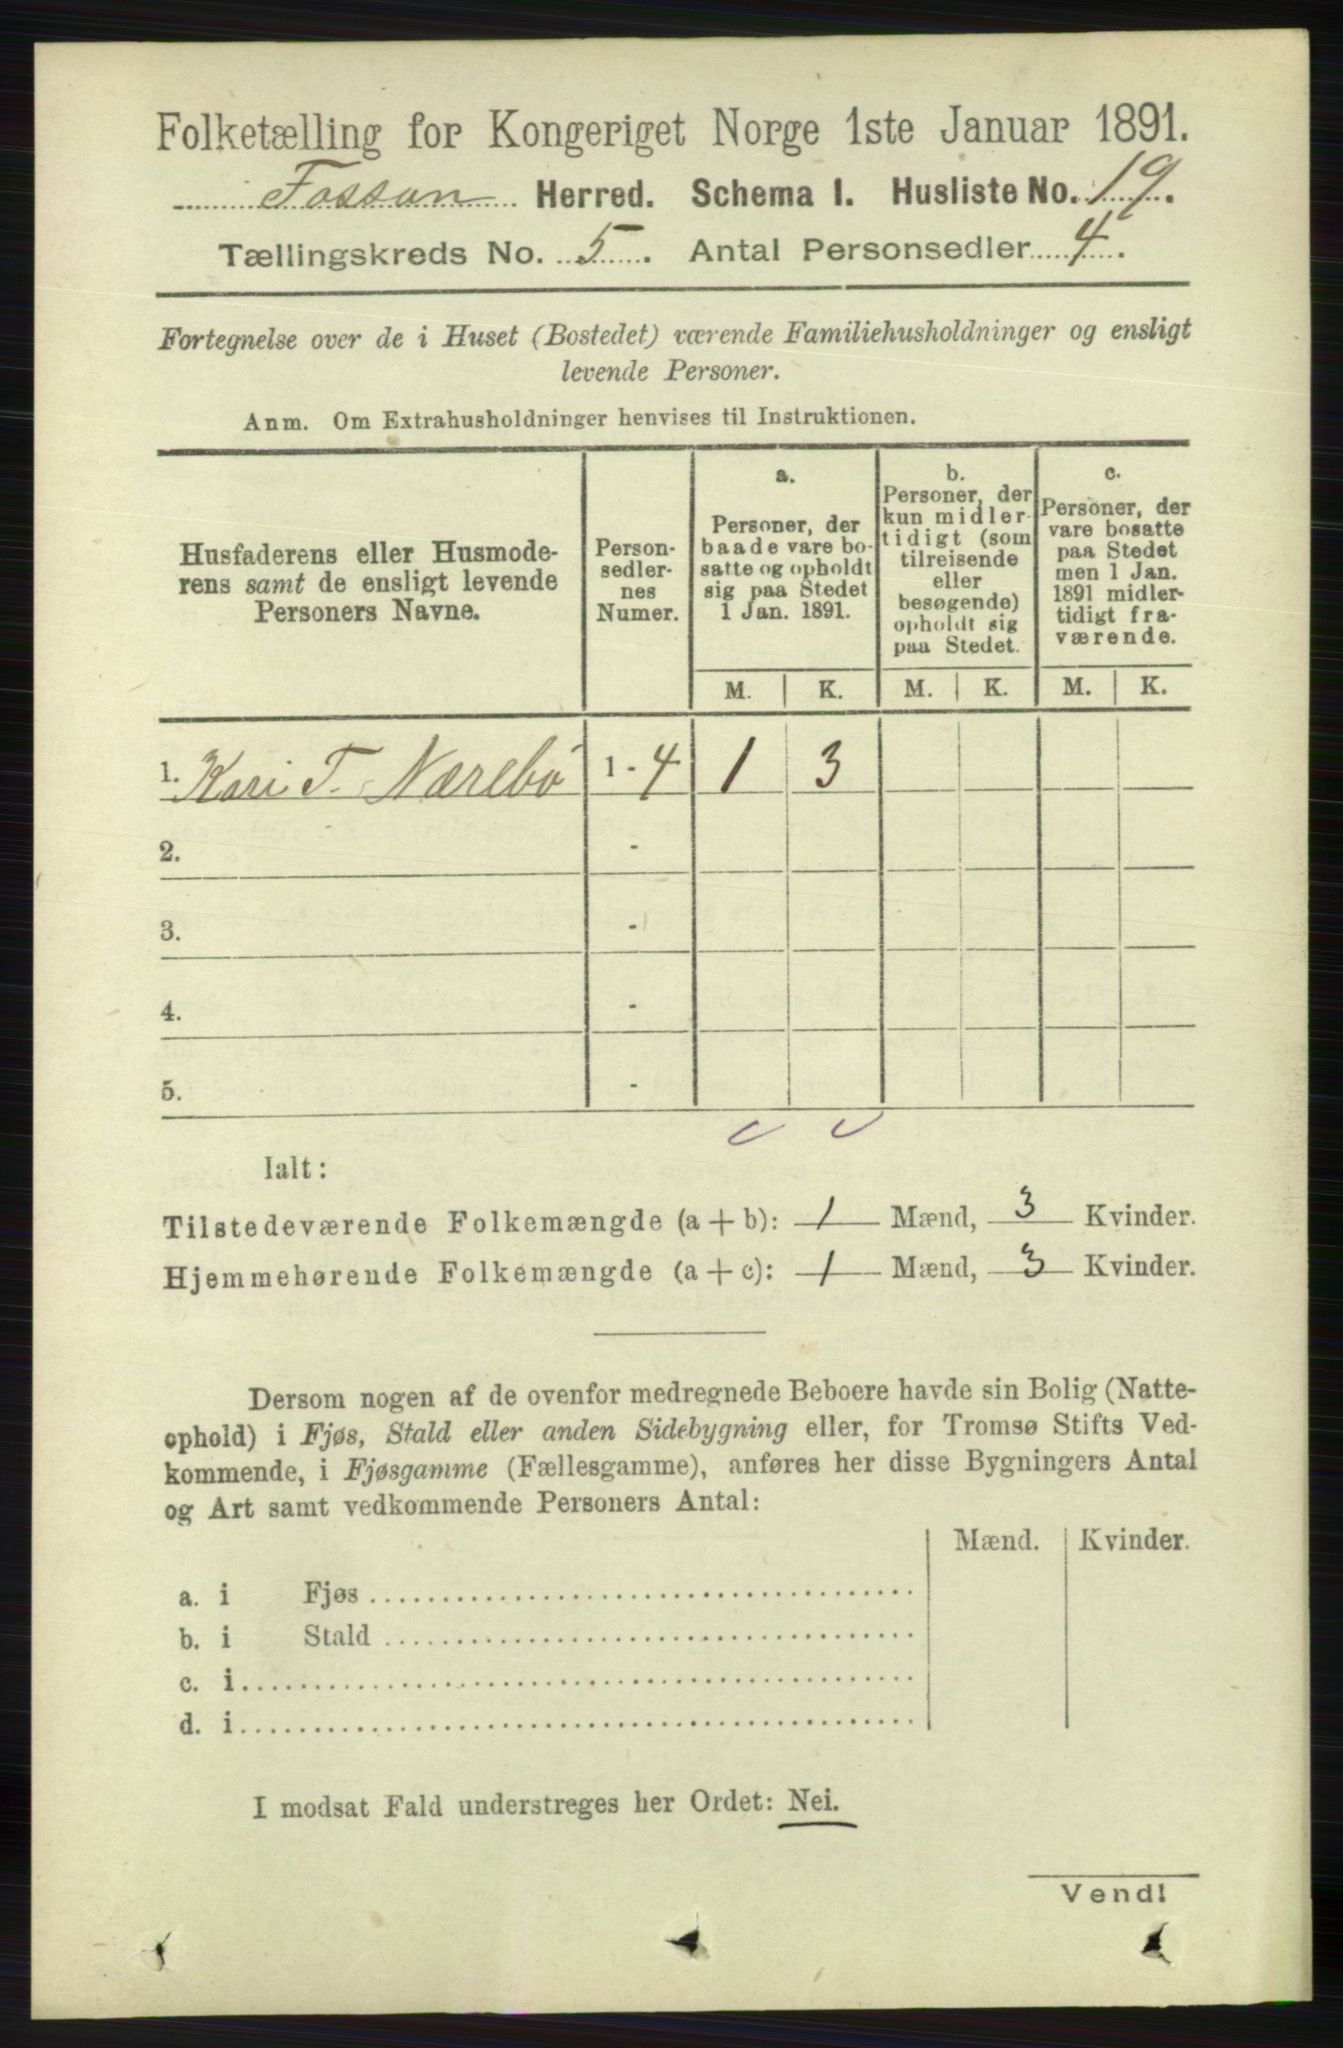 Folketælling for Kongeriget Norge 1ste Januar 1891.
Fossan Herred. Schema I. Husliste No. 19.
Tællingskreds No. 5. Antal Personsedler 4.
Fortegnelse over de i Huset (Bostedet) værende Familiehusholdninger og ensligt
levende Personer.
Anm. Om Extrahusholdninger henvises til Instruktionen.
Husfaderens eller Husmode-
rens samt de ensligt levende
Personers Navne.
Person-
sedler-
nes
Numer.
a.
Personer, der
baade vare bo-
satte og opholdt
sig paa Stedet
1 Jan. 1891.
b.
Personer, der
kun midler-
tidigt (som
tilreisende
eller
besøgende)
opholdt sig
paa Stedet.
c.
Personer, der
vare bosatte
paa Stedet
men 1 Jan.
1891 midler-
tidigt fra-
værende.
M. K. M. K. M. K.
1. Kari T. Nærebö 1 - 4 1 3
2. -
3. -
4. -
5. -
Ialt:
Tilstedeværende Folkemængde (a + b): 1 Mænd, 3 Kvinder.
Hjemmehørende Folkemængde (a + c): 1 Mænd, 3 Kvinder.
Dersom nogen af de ovenfor medregnede Beboere havde sin Bolig (Natte-
ophold) i Fjøs, Stald eller anden Sidebygning eller, for Tromsø Stifts Ved-
kommende, i Fjøsgamme (Fællesgamme), anføres her disse Bygningers Antal
og Art samt vedkommende Personers Antal:
Mænd. Kvinder.
a. i Fjøs
b. i Stald
c. i
d. i
I modsat Fald understreges her Ordet: Nei.
Vend!